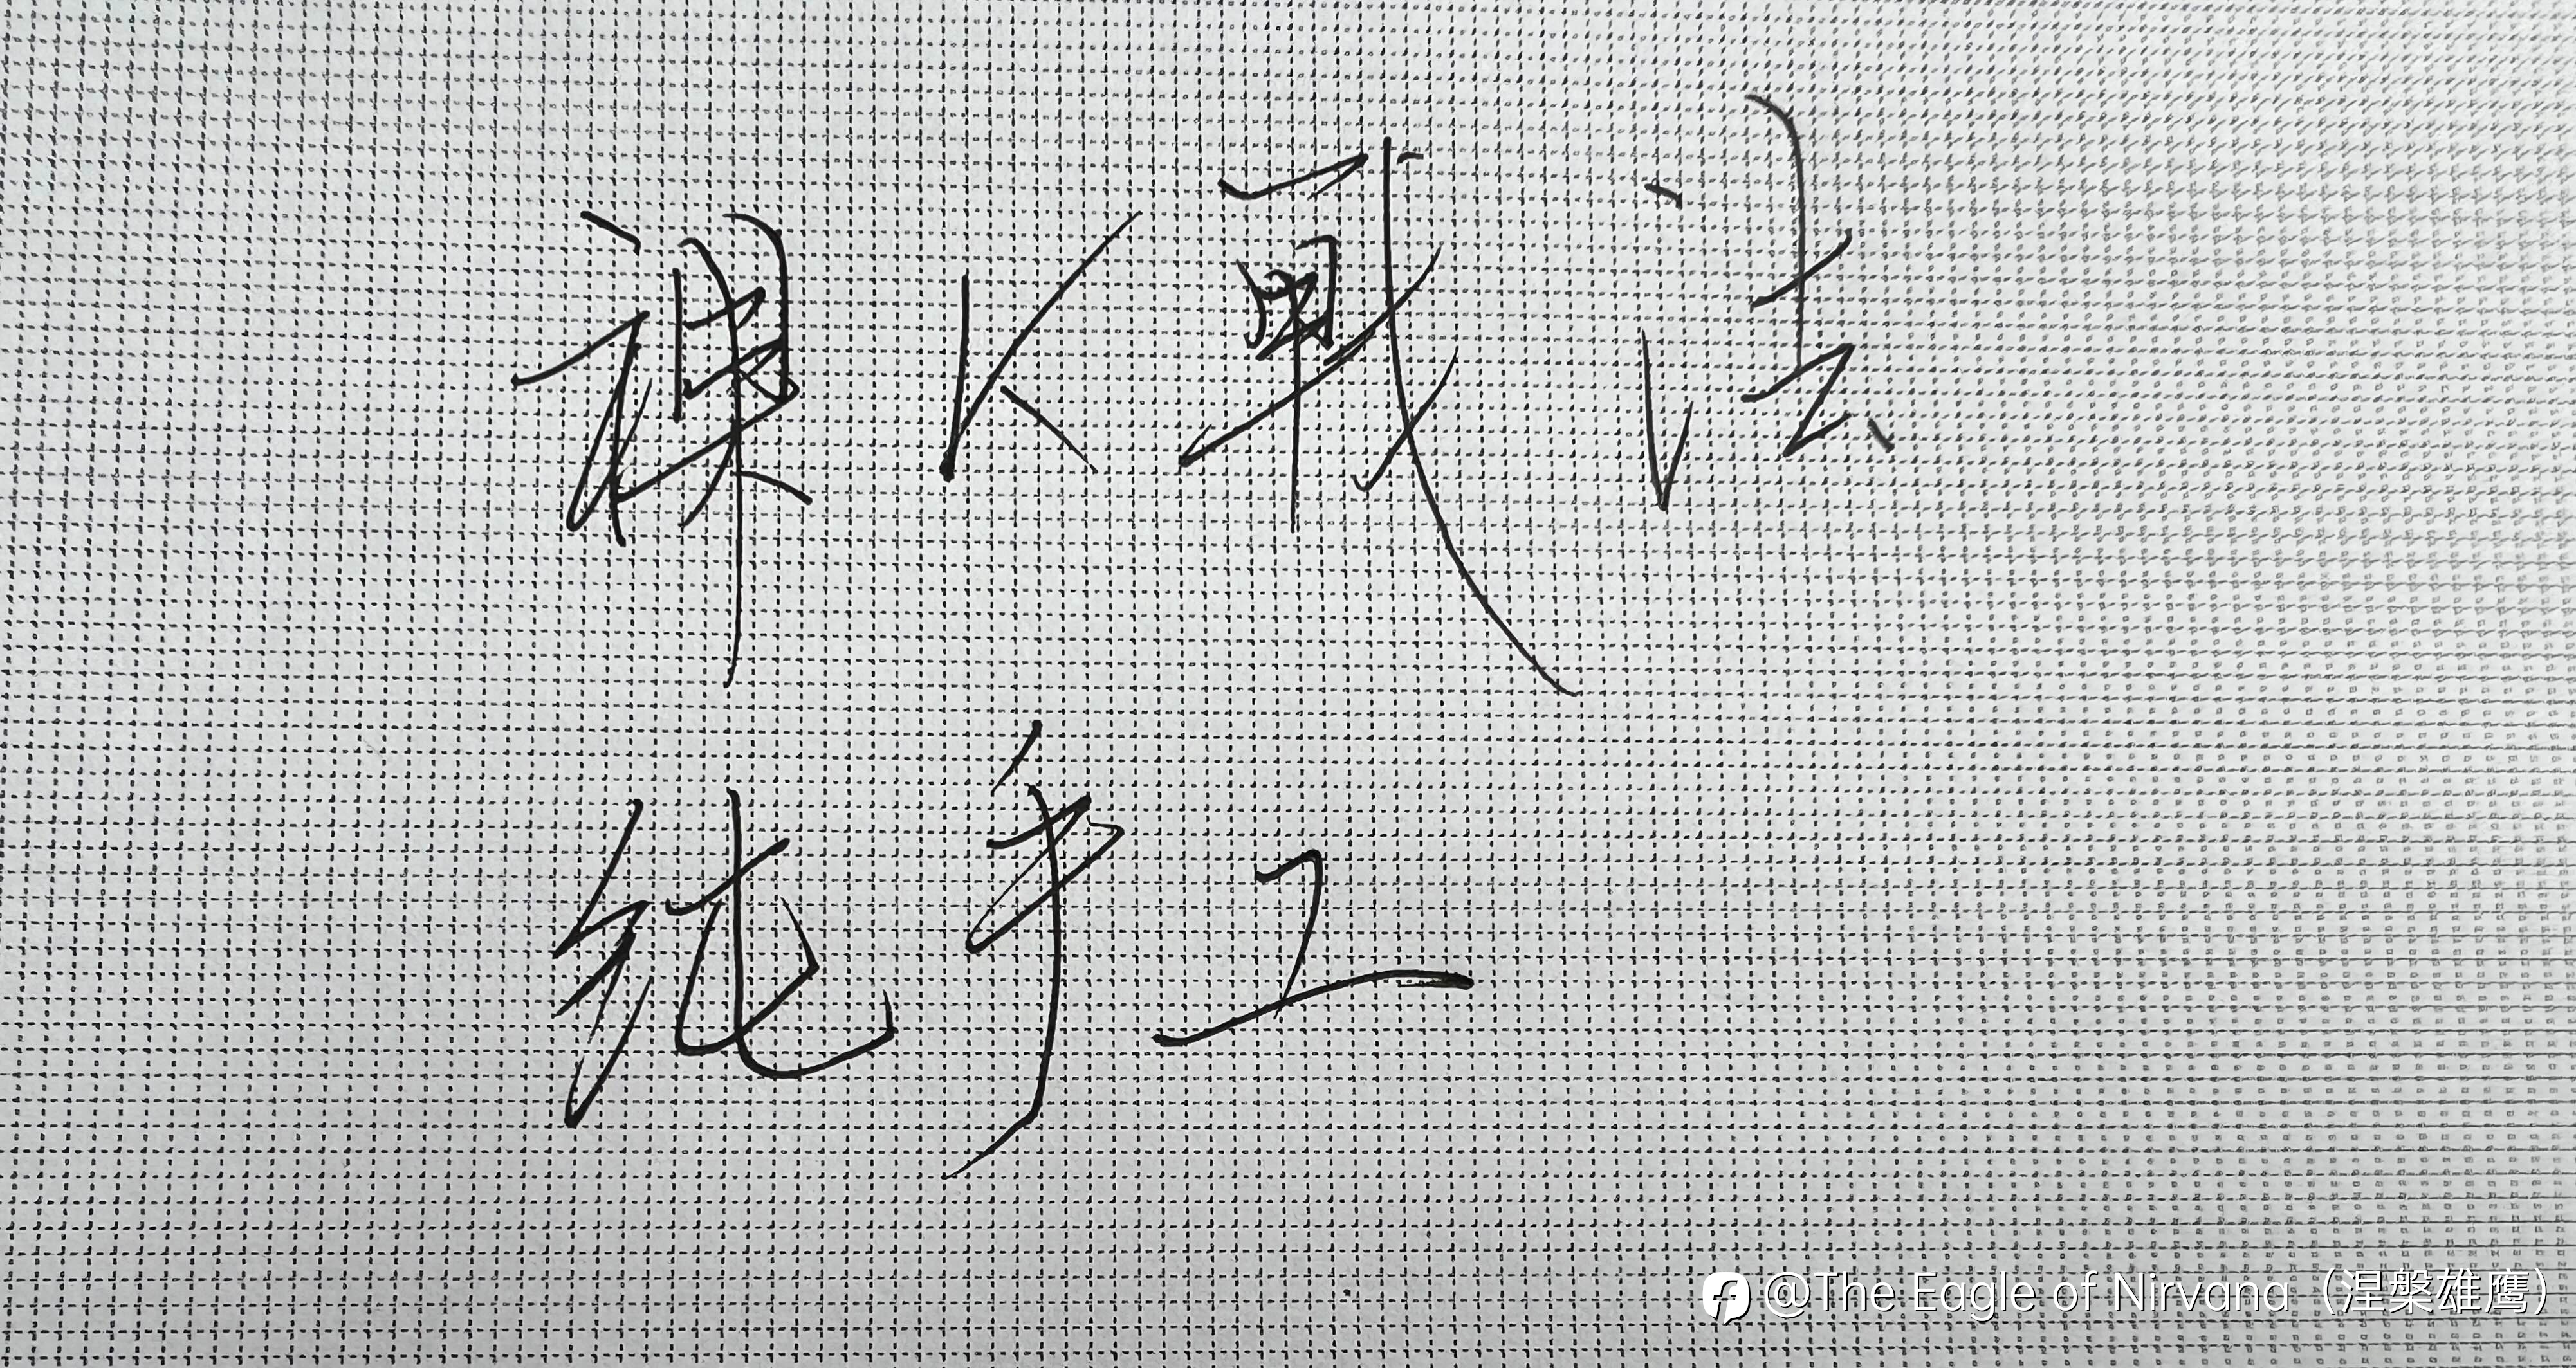 裸K战法
纯手工
@The Eagle of Nirvana（涅槃雄鹰）